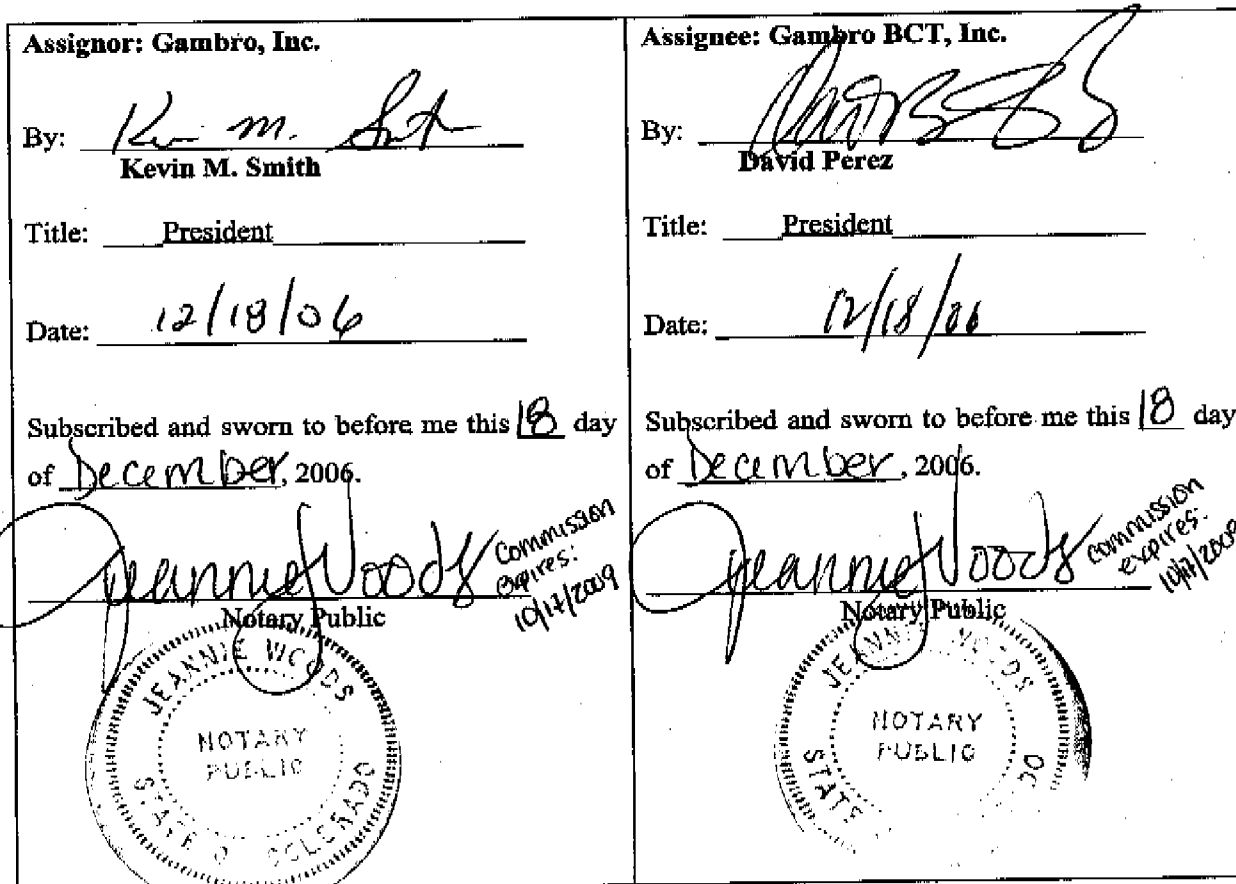 Assignor: Gambro, Inc.
By: Kevin M. Smith
Kevin M. Smith
Title: President
Date: 12/18/06
Subscribed and sworn to before me this 18 day
of December, 2006.
Jeannie Woods
Commission
expires:
10/17/2009
Notary Public
JEANNIE WOODS
NOTARY
PUBLIC
STATE OF COLORADO
Assignee: Gambro BCT, Inc.
By:
David Perez
Title: President
Date: 12/18/06
Subscribed and sworn to before me this 18 day
of December, 2006.
Jeannie Woods
commission
expires:
10/17/2009
Notary Public
JEANNIE WOODS
NOTARY
PUBLIC
STATE